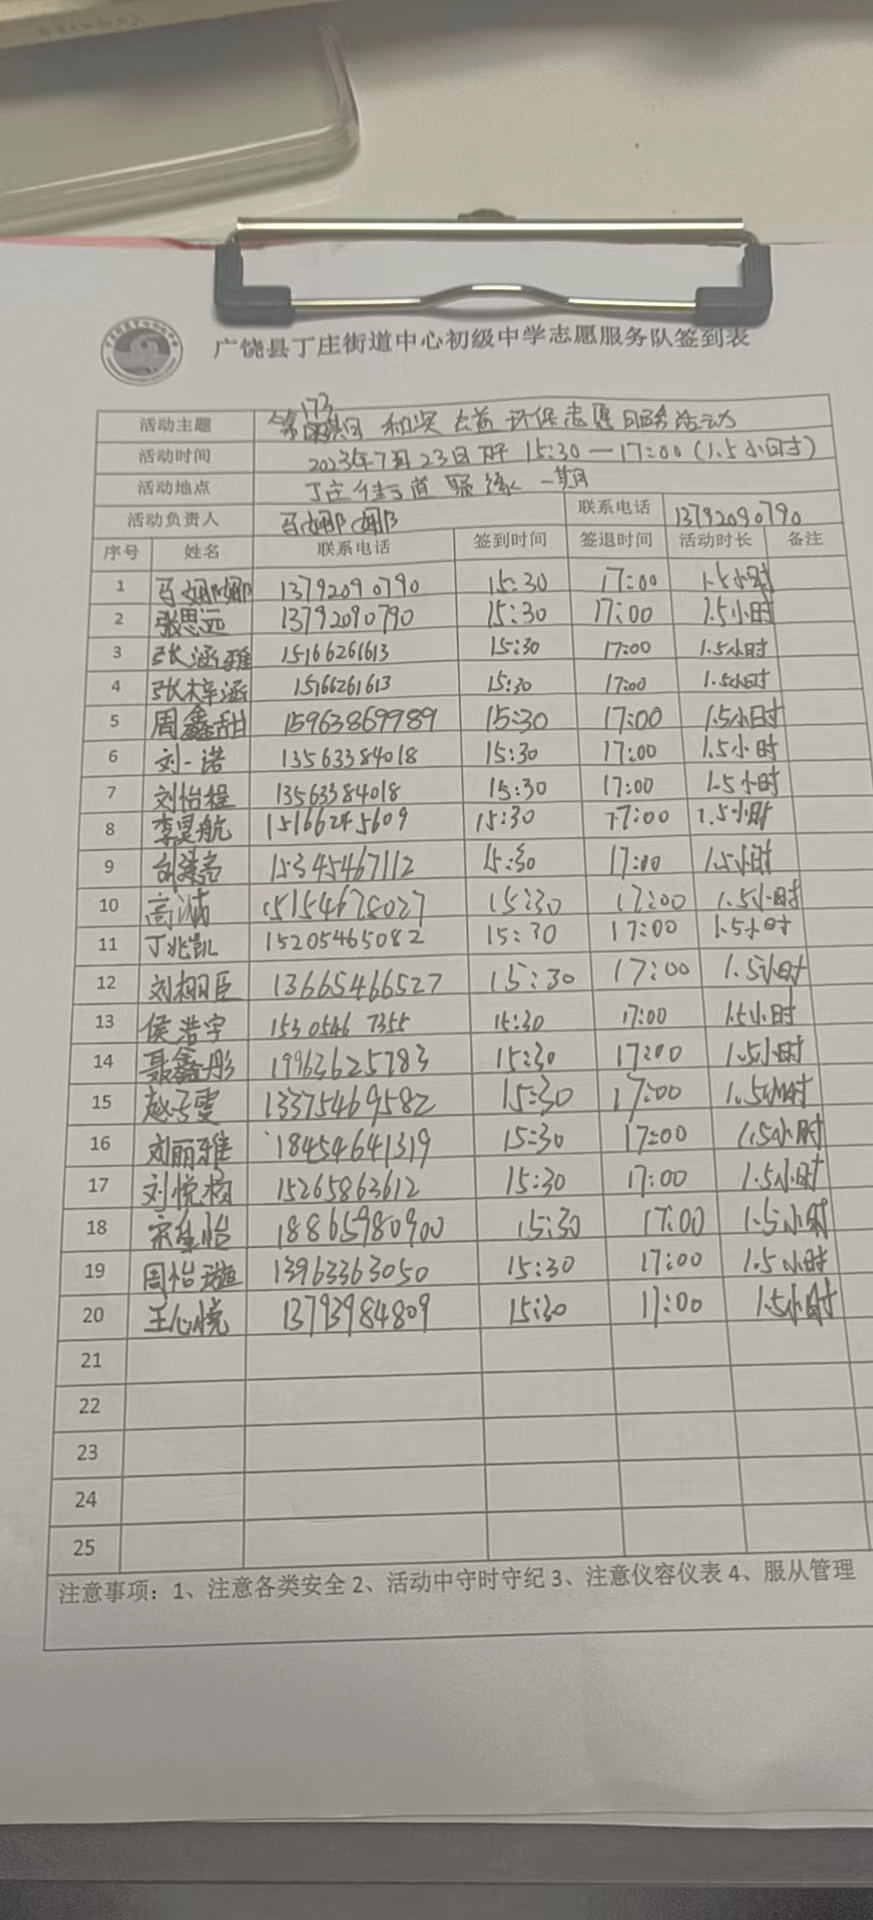 广饶县丁庄街道中心初级中学志愿服务队签到表
活动主题 第173期 和奕公益环保志愿服务活动
活动时间 2023年7月23日 下午 15:30—17:00(1.5小时)
活动地点 丁庄街道 一期
活动负责人 马娜娜 联系电话 13792090790
序号 姓名 联系电话 签到时间 签退时间 活动时长 备注
1 马娜娜 13792090790 15:30 17:00 1.5小时
2 张思远 13792090790 15:30 17:00 1.5小时
3 张涵雅 15166261613 15:30 17:00 1.5小时
4 张梓涵 15166261613 15:30 17:00 1.5小时
5 周鑫甜 15963869789 15:30 17:00 1.5小时
6 刘一诺 13563384018 15:30 17:00 1.5小时
7 刘怡程 13563384018 15:30 17:00 1.5小时
8 李昊航 15166245609 15:30 17:00 1.5小时
9 15345467112 15:30 17:00 1.5小时
10 高诚 15154678027 15:30 17:00 1.5小时
11 丁兆凯 15205465082 15:30 17:00 1.5小时
12 刘栩臣 13665466527 15:30 17:00 1.5小时
13 侯浩宇 15305467355 15:30 17:00 1.5小时
14 聂鑫彤 19963625783 15:30 17:00 1.5小时
15 赵子雯 13375469582 15:30 17:00 1.5小时
16 刘丽雅 18454641319 15:30 17:00 1.5小时
17 刘悦 15265863612 15:30 17:00 1.5小时
18 宋佳怡 18865980900 15:30 17:00 1.5小时
19 周怡璇 13963363050 15:30 17:00 1.5小时
20 王心悦 13793984809 15:30 17:00 1.5小时
21
22
23
24
25
注意事项:1、注意各类安全 2、活动中守时守纪 3、注意仪容仪表 4、服从管理